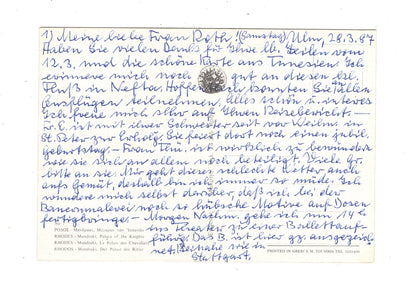 1) Meine liebe Frau Roth! (Samstag) Ulm, 28.3.87
Haben Sie vielen Dank für Ihre lb. Zeilen vom
12.3. und die schöne Karte aus Tunesien. Ich
erinnere mich noch gut an diesen kl.
Fluß in Nefta. Hoffentlich konnten Sie an allen
Ausflügen teilnehmen. Alles schön u. interes.
Ich freue mich sehr auf Ihren Reisebericht -
ist mit ihrer Schwester seit vor Weihn. in
St. Peter zur Erholg. Sie feiert dort noch einen jubil.
Geburtstag - Frau ist wirklich zu bewundern
wie sie sich an allem noch beteiligt. Viele Gr.
bitte an sie. Mir geht dieses schlechte Wetter auch
aufs Gemüt, deshalb bin ich immer so müde. Ich
wundere mich selbst darüber, daß ich bei der
Bauernmalerei noch so hübsche Motive auf Dosen
fertigbringe - Morgen Nachm. gehe ich um 14
ins Theater zu einer Ballettauf-
führg. Das B. ist hier gz. ausgezeich-
net, beinahe wie in
Stuttgart.
RHODES - Mandraki. Palace of the Knights
RHODES - Mandraki. Le Palais des Chevaliers
RHODOS - Mandraki. Der Palast der Ritter
PRINTED IN GREECE